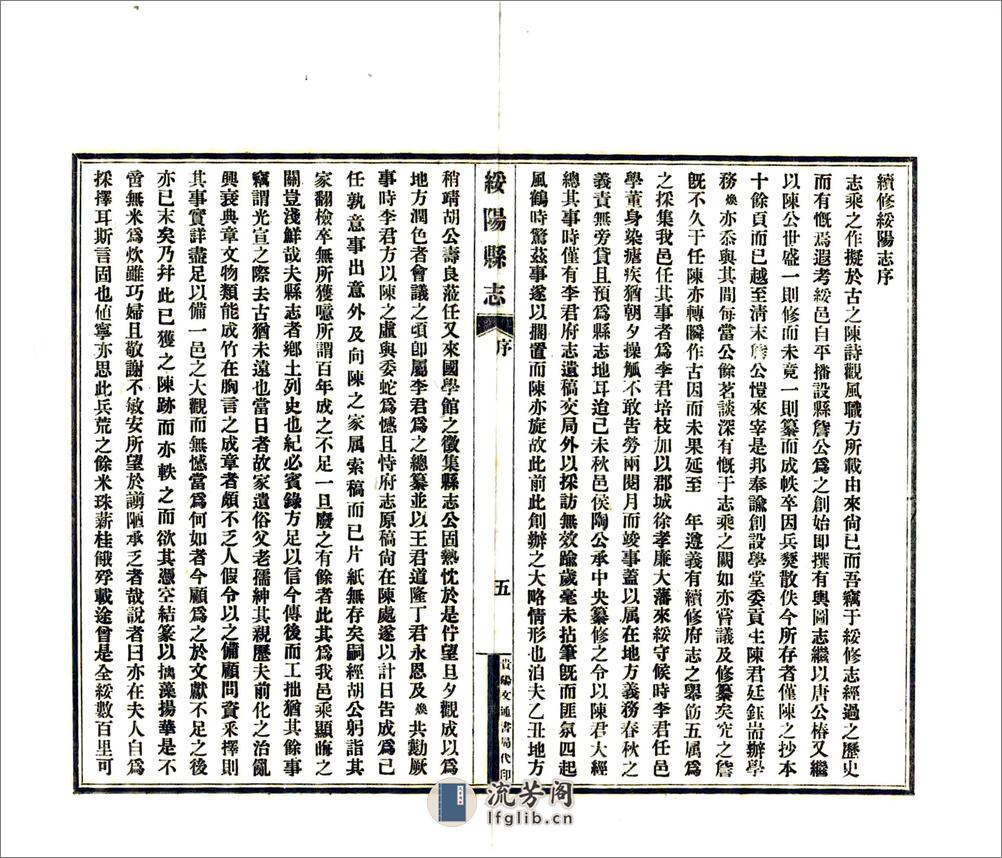 續修綏陽志序
志乘之作擬於古之陳詩觀風職方所載由來尙已而吾竊于綏修志經過之歷史
而有慨焉遐考綏邑自平播設縣詹公爲之創始即撰有輿圖志繼以唐公椿又繼
以陳公世盛一則修而未竟一則纂而成帙卒因兵燹散佚今所存者僅陳之抄本
十餘頁而已越至淸末詹公愷來宰是邦奉諭創設學堂委貢生陳君廷鈺耑辦學
務煥亦忝與其間每當公餘茗談深有慨于志乘之闕如亦嘗議及修纂矣究之詹
旣不久于任陳亦轉瞬作古因而未果延至 年遵義有續修府志之舉飭五属爲
之採集我邑任其事者爲李君培枝加以郡城徐孝廉大藩來綏守候時李君任邑
學董身染瘧疾猶朝夕操觚不敢告勞兩閱月而竣事蓋以属在地方義務春秋之
義責無旁貸且預爲縣志地耳迨己未秋邑侯陶公承中央纂修之令以陳君大經
總其事時僅有李君府志遺稿交局外以採訪無效踰歲毫未拈筆旣而匪氛四起
風鶴時驚茲事遂以擱置而陳亦旋故此前此創辦之大略情形也洎夫乙丑地方
綏陽縣志
序
五
貴陽文通書局代印
稍靖胡公壽良蒞任又來國學館之徵集縣志公固熱忱於是佇望旦夕觀成以爲
地方潤色者會議之頃卽屬李君爲之總纂並以王君道隆丁君永恩及煥共勷厥
事時李君方以陳之盧與委蛇爲憾且恃府志原稿尙在陳處遂以計日告成爲己
任孰意事出意外及向陳之家属索稿而已片紙無存矣嗣經胡公躬詣其
家翻檢卒無所獲噫所謂百年成之不足一旦廢之有餘者此其爲我邑乘顯晦之
關豈淺鮮哉夫縣志者鄉土列史也紀必賓錄方足以信今傳後而工拙猶其餘事
竊謂光宣之際去古猶未遠也當日者故家遺俗父老孺紳其親歷夫前化之治亂
興衰典章文物類能成竹在胸言之成章者頗不乏人假令以之備顧問資釆擇則
其事實詳盡足以備一邑之大觀而無憾當爲何如者今顧爲之於文獻不足之後
亦已末矣乃幷此已獲之陳跡而亦軼之而欲其憑空結篆以摛藻揚華是不
啻無米爲炊雖巧婦且敬謝不敏安所望於謭陋承乏者哉說者曰亦在夫人自爲
採擇耳斯言固也値寧亦思此兵荒之餘米珠薪桂餓殍載途曾是全綏數百里可
流芳阁
lfglib.cn